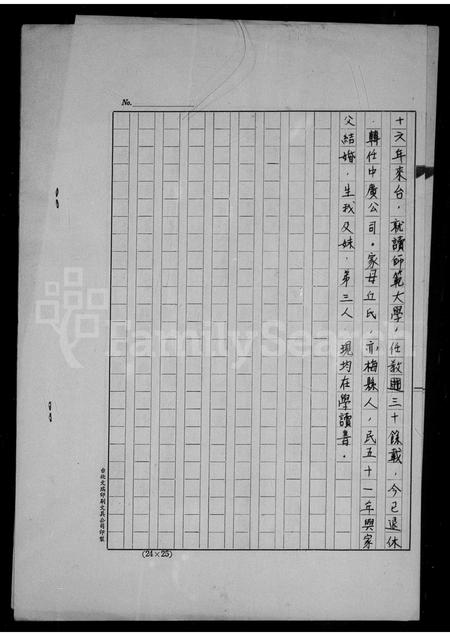 No.
十六年來台．就讀師範大學，任教逾三十餘載，今已退休
．轉任中廣公司．家母丘氏，亦梅縣人，民五十一年與家
父結婚．生我及妹．弟三人　現均在學讀書．
台北文瑞印刷文具公司印製
(24×25)
FamilySearch